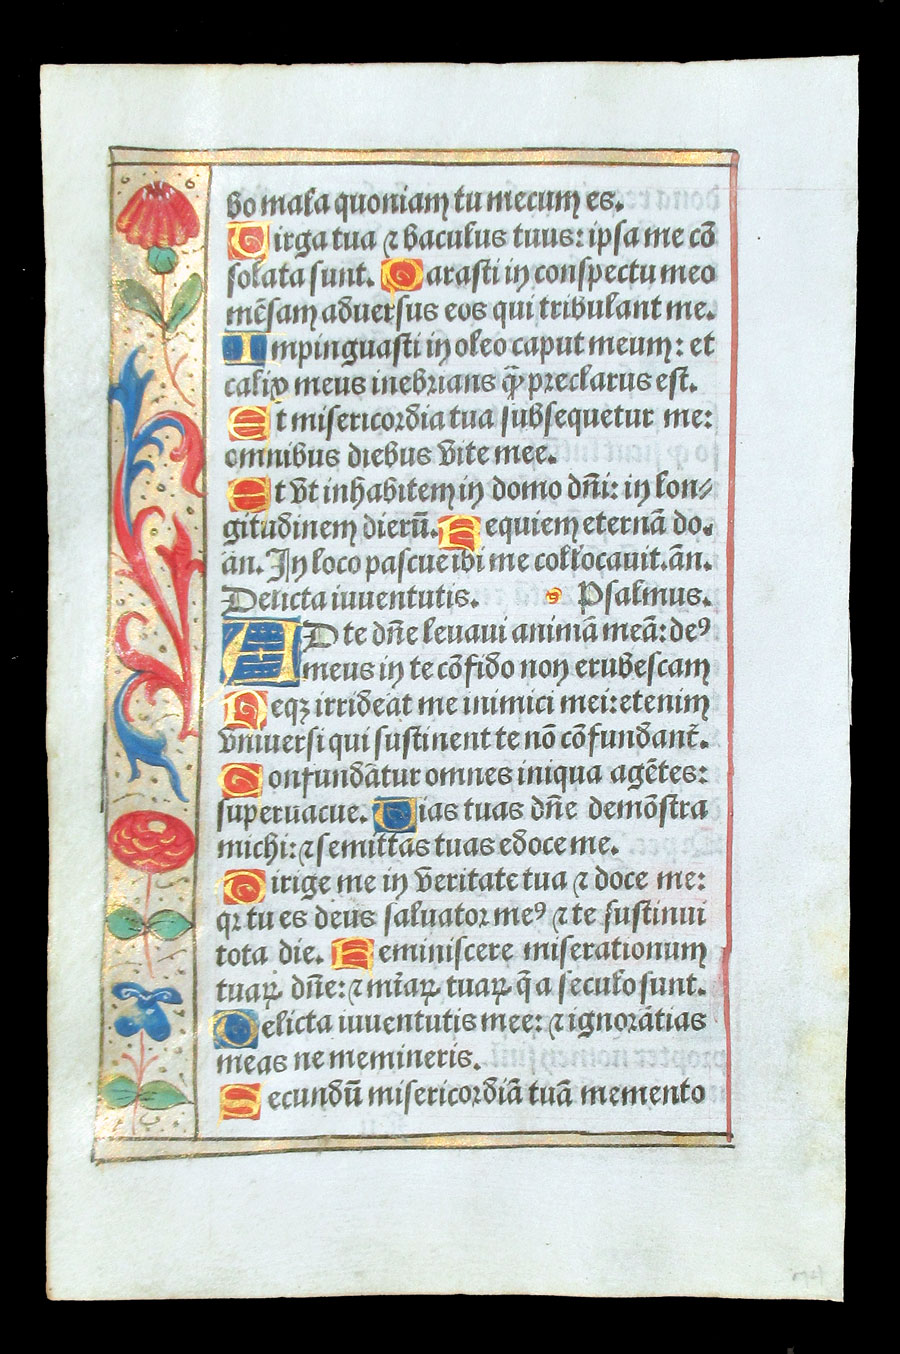 bo mala quoniam tu mecum es.
Virga tua ⁊ baculus tuus: ipsa me cõ
solata sunt. Parasti in conspectu meo
mẽsam aduersus eos qui tribulant me.
Impinguasti in oleo caput meum: et
calix meus inebrians q̃ preclarus est.
Et misericordia tua subsequetur me:
omnibus diebus vite mee.
Et vt inhabitem in domo dñi: in lon⸗
gitudinem dierũ. Requiem eternã do.
añ. In loco pascue ibi me collocauit. añ.
Delicta iuuentutis. Psalmus.
AD te dñe leuaui animã meã: deꝰ
meus in te cõfido non erubescam
Neqꝫ irrideãt me inimici mei: etenim
vniuersi qui sustinent te nõ cõfundant̃.
Confundãtur omnes iniqua agẽtes:
superuacue. Vias tuas dñe demõstra
michi: ⁊ semittas tuas edoce me.
Dirige me in veritate tua ⁊ doce me:
qꝛ tu es deus saluator meꝰ ⁊ te sustinui
tota die. Reminiscere miserationum
tuaꝝ dñe: ⁊ mĩaꝝ tuaꝝ q̃ a seculo sunt.
Delicta iuuentutis mee: ⁊ ignorãtias
meas ne memineris.
Secundũ misericordiã tuã memento